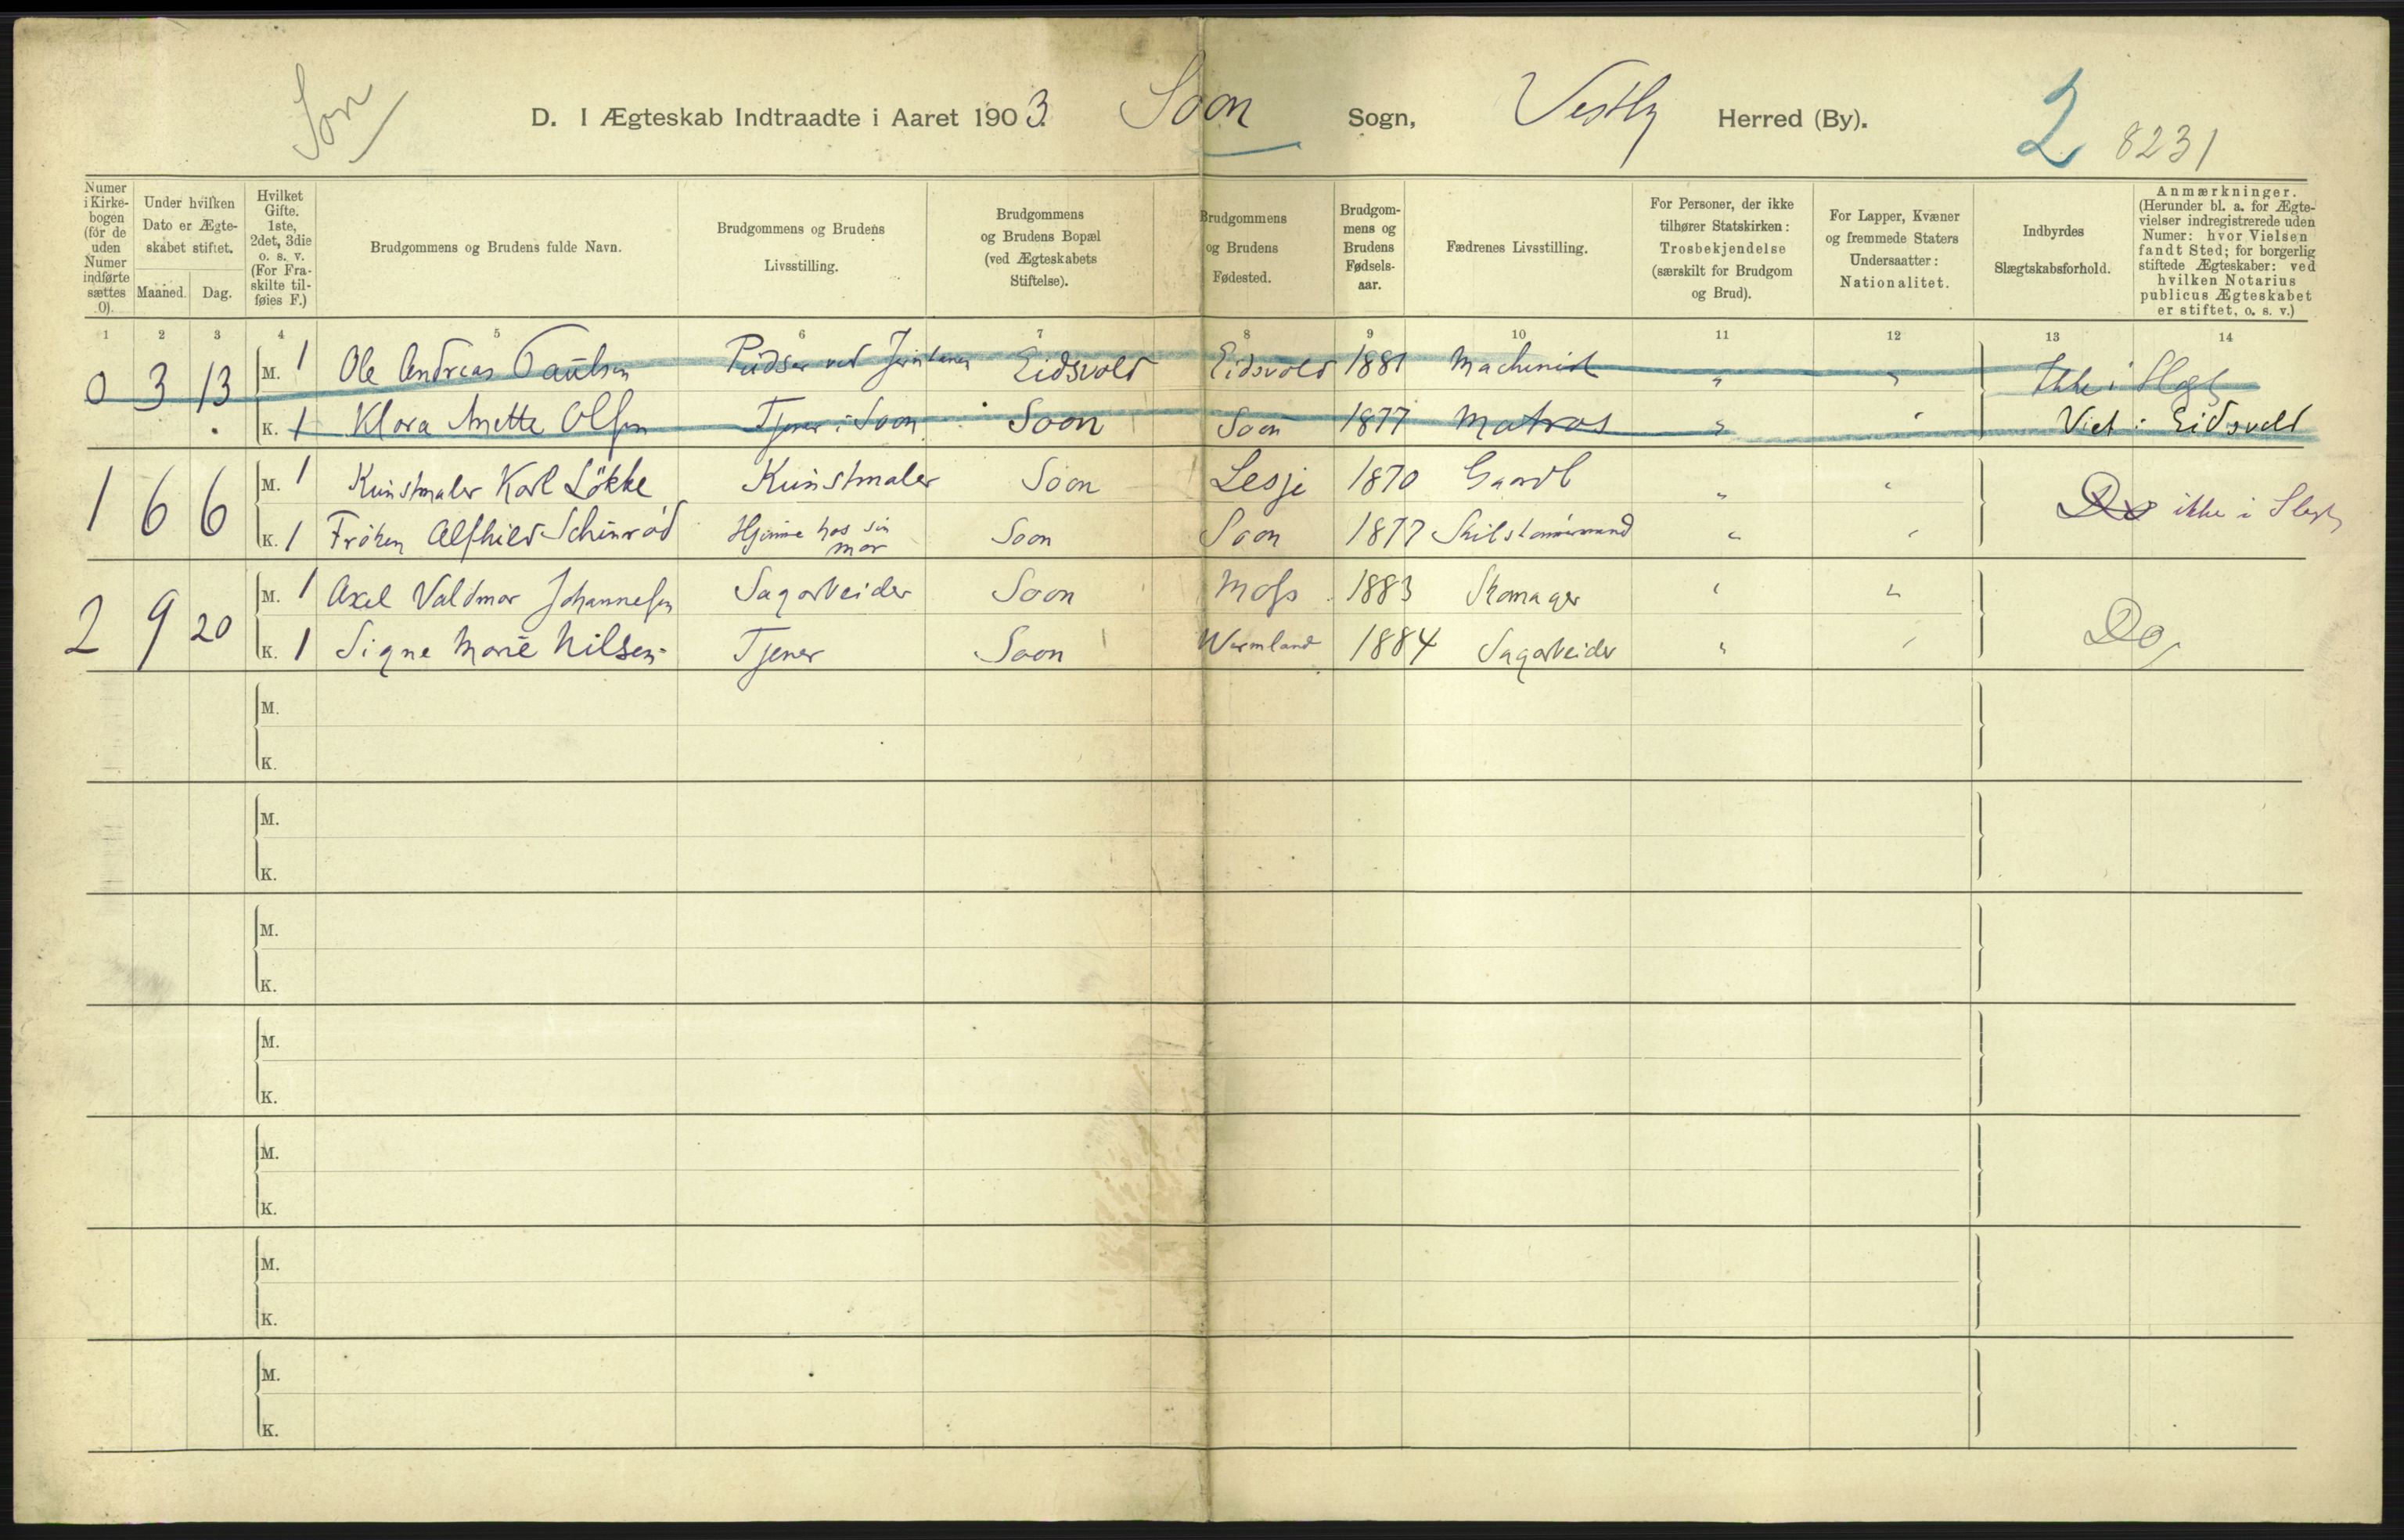 Son
D. I Ægteskab Indtraadte i Aaret 1903. Soon Sogn, Vestby Herred (By). 2 8231
Numer i Kirkebogen (for de uden Numer indførte sættes 0).
Under hvilken Dato er Ægteskabet stiftet.
Maaned. Dag.
Hvilket Gifte. 1ste, 2det, 3die o. s. v. (For Fraskilte tilføies F.)
Brudgommens og Brudens fulde Navn.
Brudgommens og Brudens Livsstilling.
Brudgommens og Brudens Bopæl (ved Ægteskabets Stiftelse).
Brudgommens og Brudens Fødested.
Brudgommens og Brudens Fødselsaar.
Fædrenes Livsstilling.
For Personer, der ikke tilhører Statskirken: Trosbekjendelse (særskilt for Brudgom og Brud).
For Lapper, Kvæner og fremmede Staters Undersaatter: Nationalitet.
Indbyrdes Slægtskabsforhold.
Anmærkninger. (Herunder bl. a. for Ægtevielser indregistrerede uden Numer: hvor Vielsen fandt Sted; for borgerlig stiftede Ægteskaber: ved hvilken Notarius publicus Ægteskabet er stiftet, o. s. v.)
1 2 3 4 5 6 7 8 9 10 11 12 13 14
0 3 13 M. 1 Ole Andreas Paulsen Pudser ved Eidsvold Eidsvold 1881 Machinist " " Ikke i Slegt
K. 1 Klara Anette Olsen Tjener i Soon Soon Soon 1877 Matros " " Viet i Eidsvold
1 6 6 M. 1 Kunstmaler Karl Løkke Kunstmaler Soon Lesje 1870 Gaardb " " Do ikke i Slegt
K. 1 Frøken Alfhild Schinrød Hjemme hos sin mor Soon Soon 1877 " "
2 9 20 M. 1 Axel Valdmar Johannesen Sagarbeider Soon Moss 1883 Skomager " " Do
K. 1 Signe Marie Nilsen Tjener Soon Wermland 1884 Sagarbeider " "
M.
K.
M.
K.
M.
K.
M.
K.
M.
K.
M.
K.
M.
K.